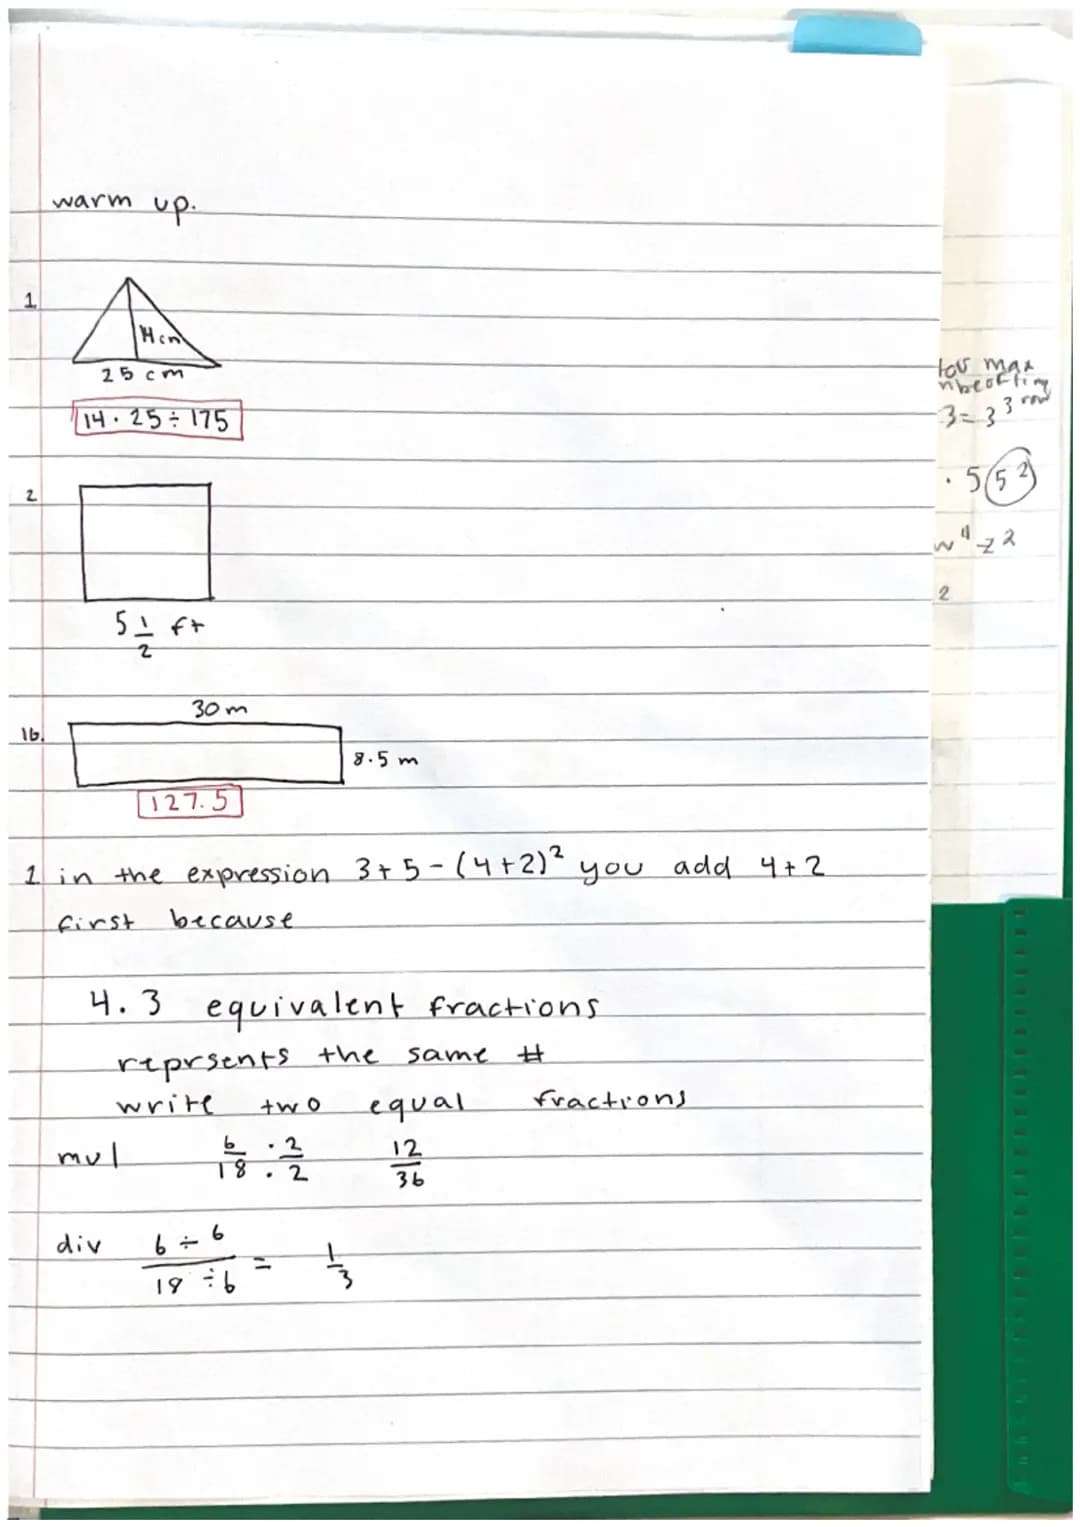 warm up.
1
14 cm
25 cm
14 · 25 ÷ 175
2
5 1/2 ft
30 m
16.
8.5 m
127.5
1 in the expression 3+5-(4+2)² you add 4+2
first because
4.3 equivalent fractions
reprsents the same #
write two equal fractions
mul 6/18 · 2/2 12/36
div 6÷6/18÷6 = 1/3
max
3=3³ row
· 5(5²)
2